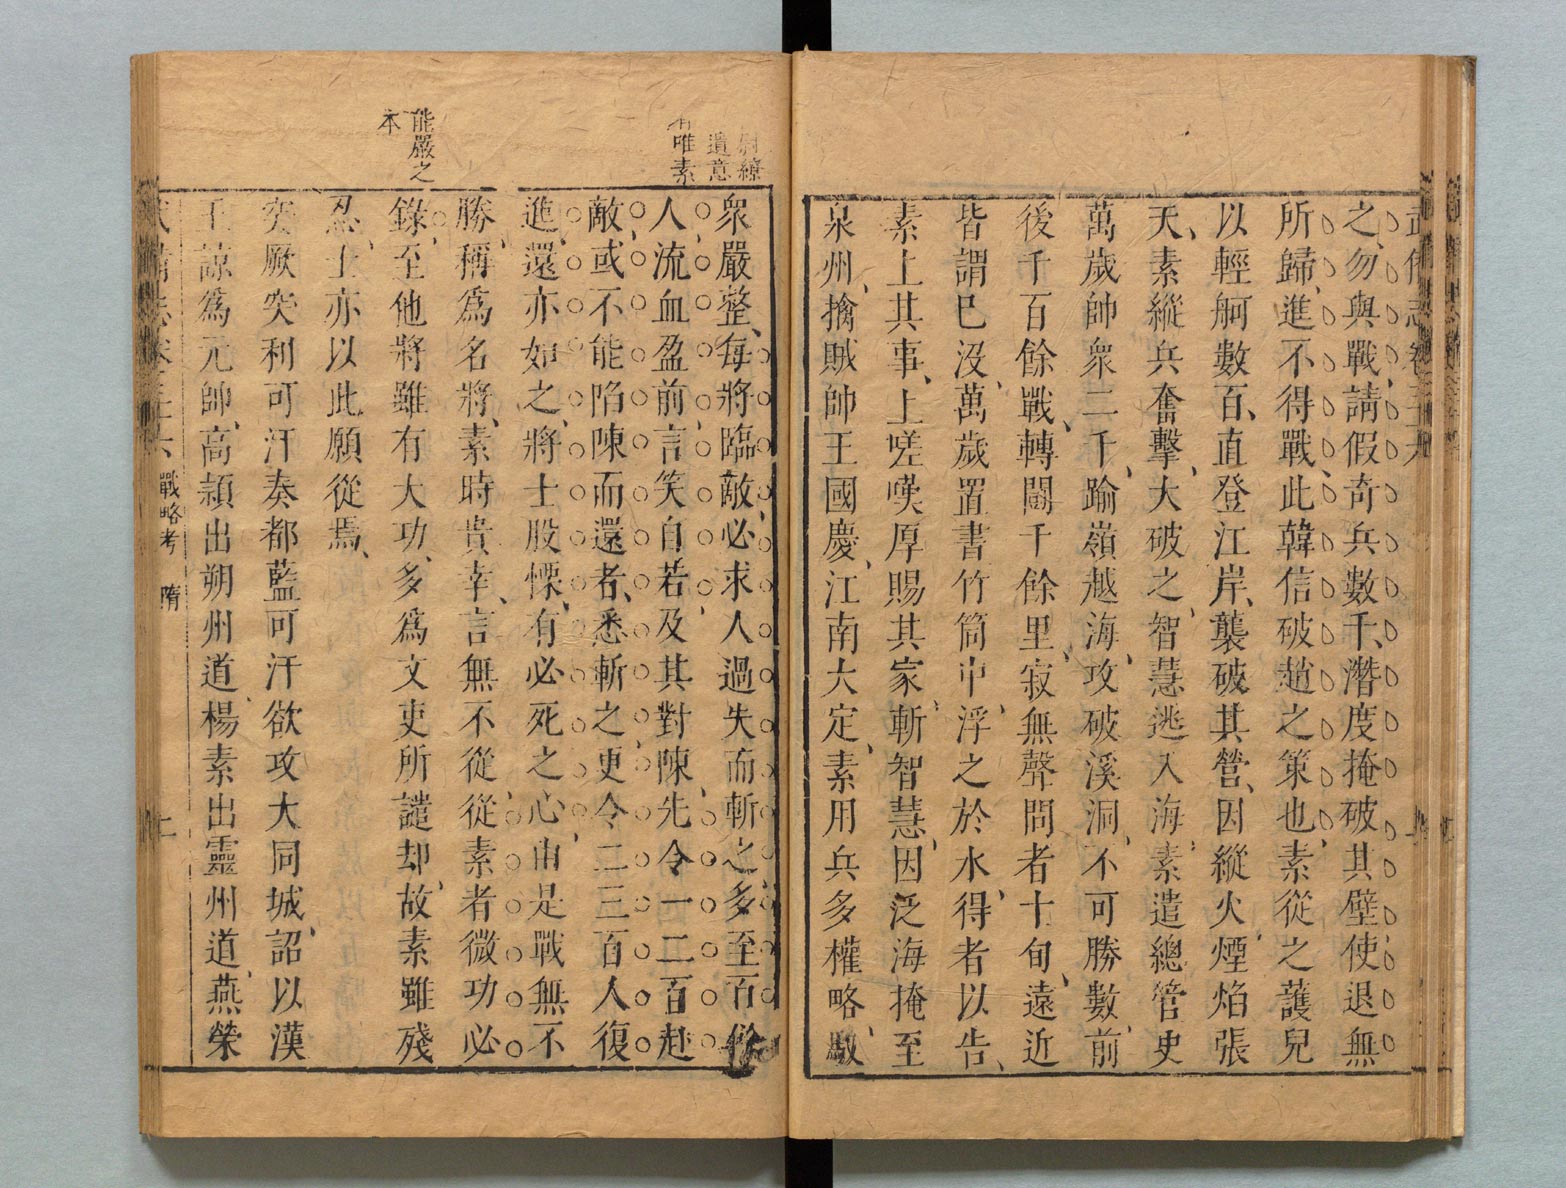 武備志卷三十六
之勿與戰請假奇兵數千潛度掩破其壁使退無
所歸進不得戰此韓信破趙之策也素從之護兒
以輕舸數百直登江岸襲破其營因縱火煙焰張
天素縱兵奮擊大破之智慧逃入海素遣總管史
萬歲帥衆二千踰嶺越海攻破溪洞不可勝數前
後千百餘戰轉鬭千餘里寂無聲問者十旬遠近
皆謂已没萬歲置書竹筒中浮之於水得者以告
素上其事上嗟嘆厚賜其家斬智慧因泛海掩至
泉州擒賊帥王國慶江南大定素用兵多權略馭
尉繚
遺意
唯素
衆嚴整每將臨敵必求人過失而斬之多至百餘
人流血盈前言笑自若及其對陳先令一二百赴
敵或不能陷陳而還者悉斬之更令二三百人復
進還亦如之將士股慄有必死之心由是戰無不
勝稱爲名將素時貴幸言無不從從素者微功必
能嚴之
本
錄至他將雖有大功多爲文吏所譴却故素雖殘
忍士亦以此願從焉
突厥突利可汗奏都藍可汗欲攻大同城詔以漢
王諒爲元帥高熲出朔州道楊素出靈州道燕榮
武備志卷三十六 戰略考 隋 二